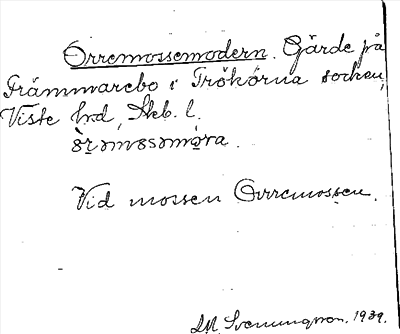 Orremossemodern. Gärde på
Främmarebo i Trökörna socken,
Viste hrd, Skb. l.
Vid mossen Orremossen.
M. Svenungsson. 1939.